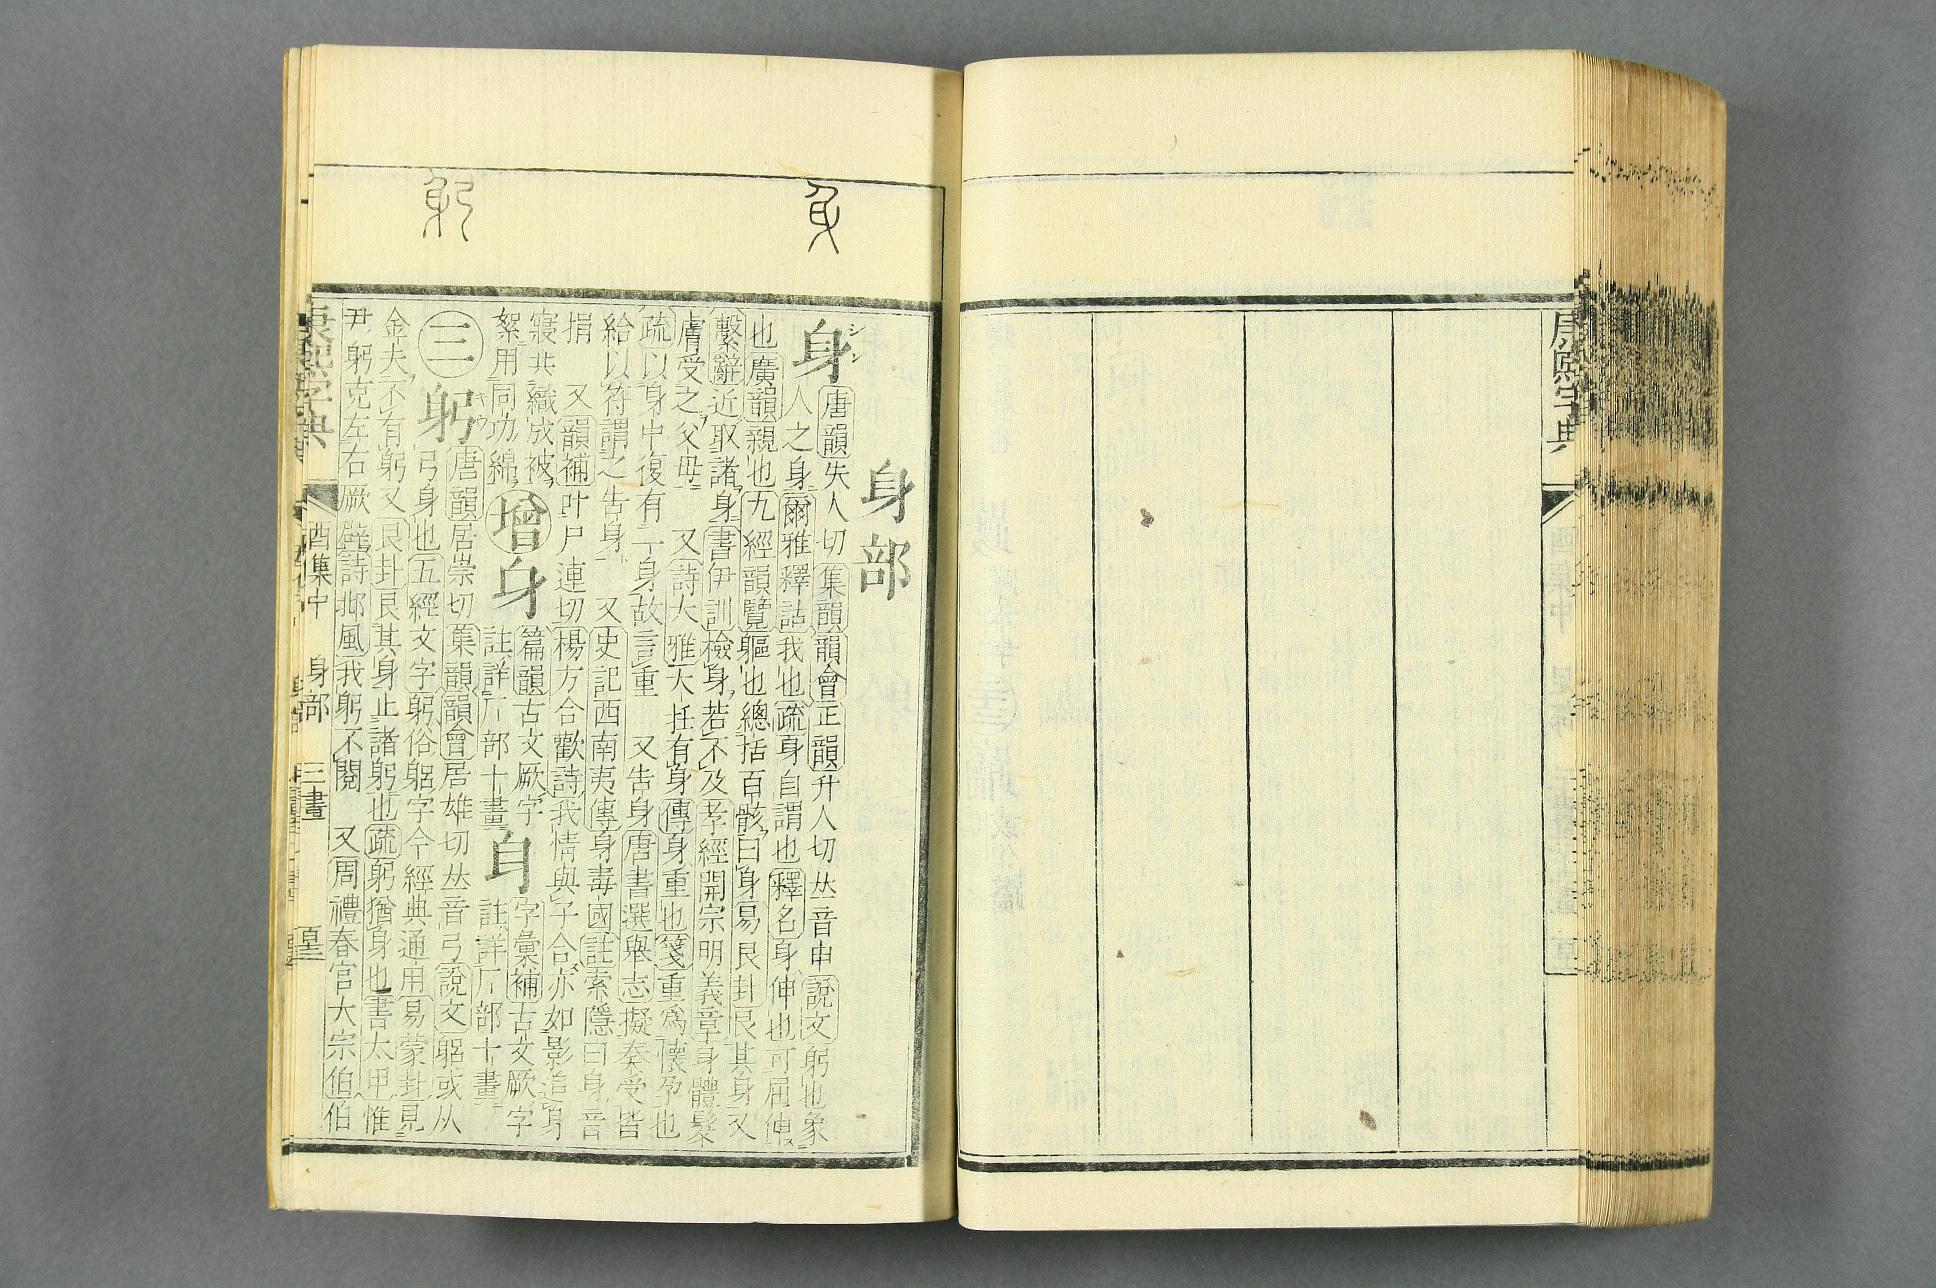 康熙字典
酉集中
身部
身
シン
唐韻失人切集韻韻會正韻升人切𠀤音申說文躬也象
人之身爾雅釋詁我也疏身自謂也釋名身伸也可屈伸
也廣韻親也九經韻覽軀也總括百骸曰身易艮卦艮其身又
繫辭近取諸身書伊訓檢身若不及孝經開宗明義章身體髮
膚受之父母 又詩大雅大任有身傳身重也箋重爲懷孕也
疏以身中復有一身故言重 又告身唐書選舉志擬奏受皆
給以符謂之告身 又史記西南夷傳身毒國註索隱曰身音
捐 又韻補叶尸連切楊方合歡詩我情與子合亦如影追身
寢共織成被
絮用同功綿
增
身
篇韻古文厥字
註詳厂部十畫
字彙補古文厥字
註詳厂部十畫
三
躬
キウ
唐韻居崇切集韻韻會居雄切𠀤音弓說文躳或从
弓身也五經文字躬俗躳字今經典通用易蒙卦見
金夫不有躬又艮卦艮其身止諸躬也疏躬猶身也書太甲惟
尹躬克左右厥辟詩邶風我躬不閱 又周禮春官大宗伯伯
康熙字典
酉集中 身部 三畫